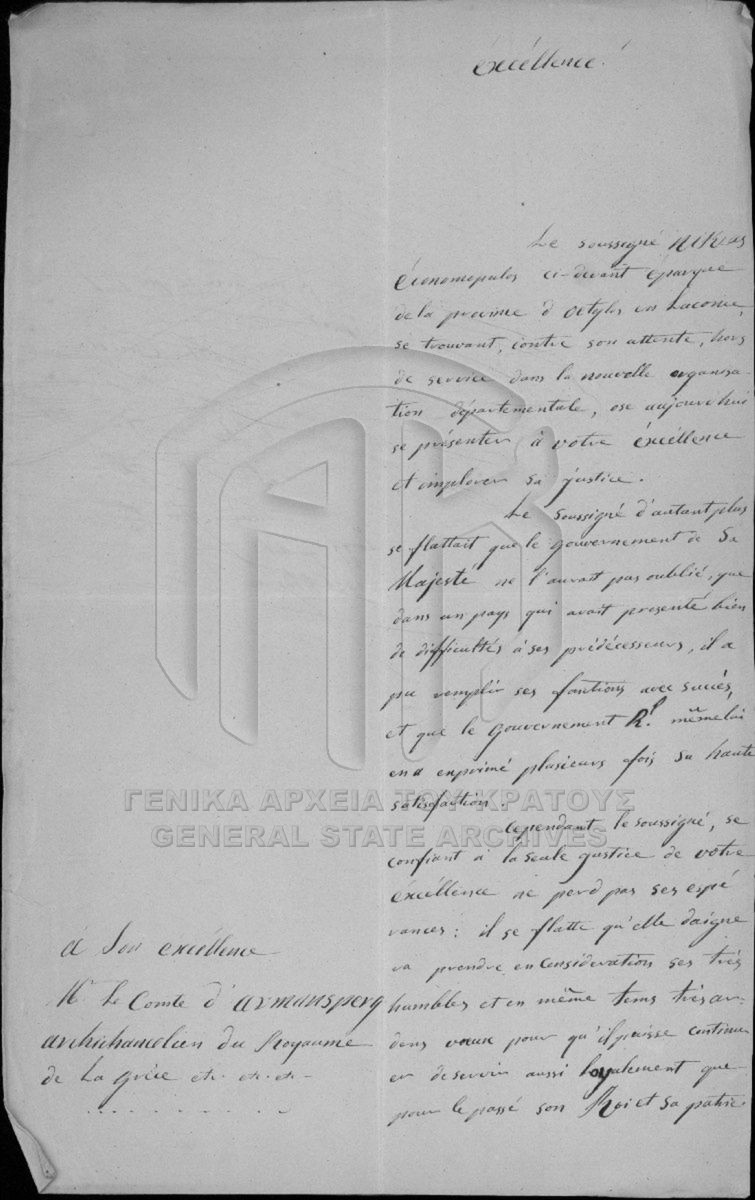 éxcéllence!
Le soussigné Nikolas
économopulos ci-devant éparque
de la province d'Oetylos en Laconie,
se trouvant, contre son attente, hors
de service dans la nouvelle organisa-
tion départementale, ose aujourd'hui
se présenter à votre éxcéllence
et implorer sa justice.
Le soussigné d'autant plus
se flattait que le gouvernement de Sa
Majesté ne l'aurait pas oublié, que
dans un pays qui avait presenté bien
de difficultés à ses prédécesseurs, il a
pu remplir ses fontions avec succés,
et que le gouvernement R.l même lui
en a exprimé plusieurs fois sa haute
satisfaction.
Cependant le soussigné, se
confiant à la seule justice de votre
éxcéllence ne perd pas ses espé
rances: il se flatte qu'elle daigne
ra prendre en considération ses trés
humbles et en même tems trés ar-
dens vœux pour qu'il puisse continu
er deservir aussi loyalement que
pour le passé son Roi et sa patrie.
à Son excéllence
Mr Le Comte d'armansperg
archichancelier du Royaume
de la Grèce etc. etc. etc.
ΓΕΝΙΚΑ ΑΡΧΕΙΑ ΤΟΥ ΚΡΑΤΟΥΣ
GENERAL STATE ARCHIVES